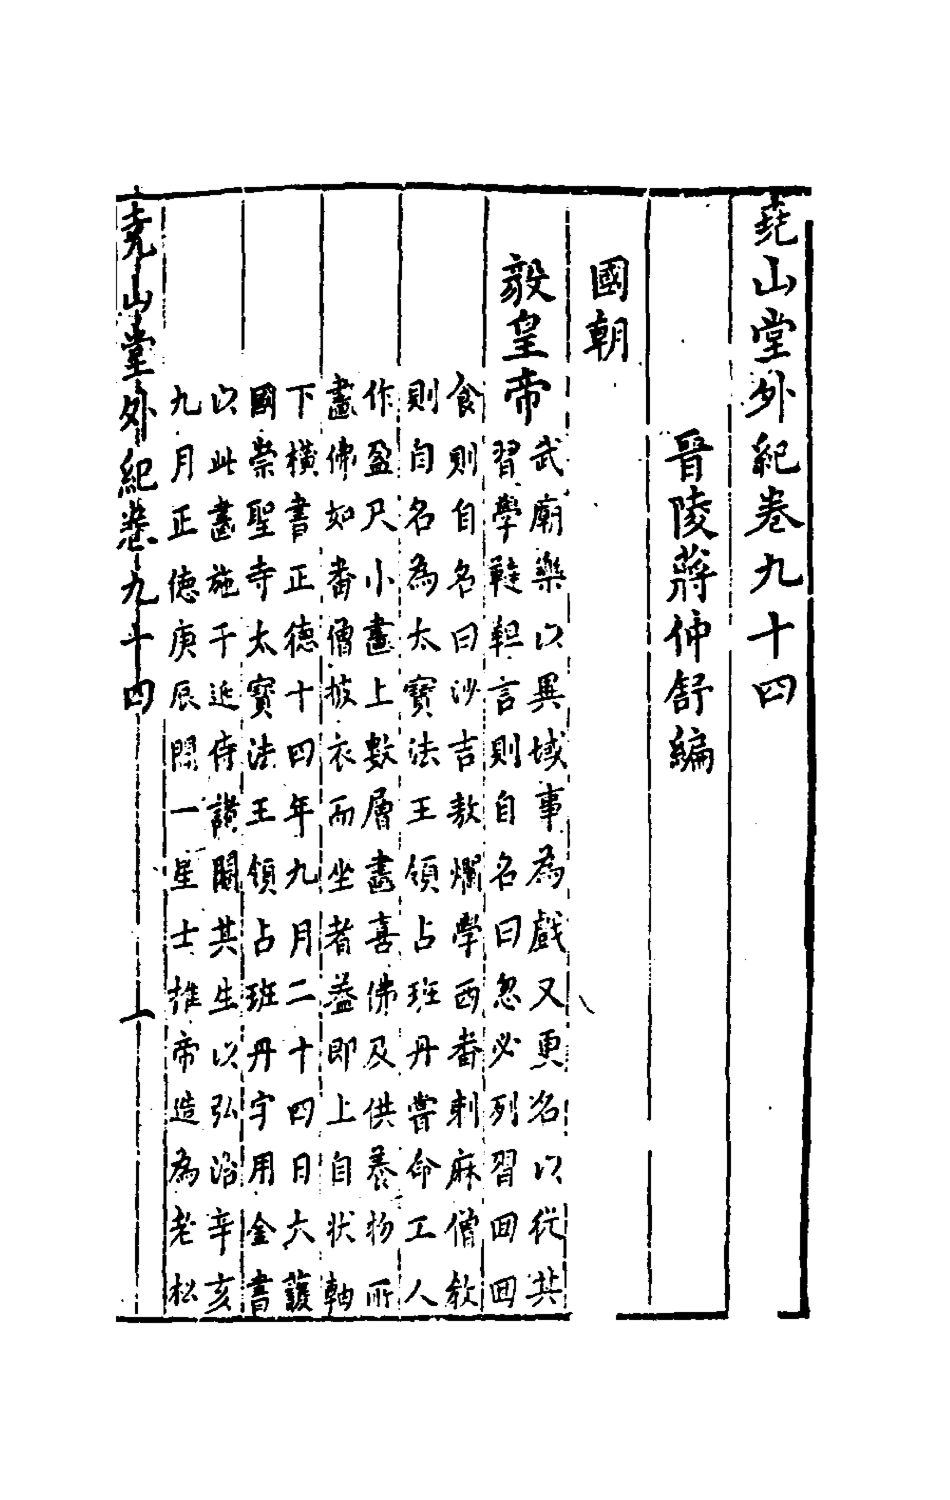 堯山堂外紀卷九十四
晉陵蔣仲舒編
國朝
毅皇帝
武廟樂以異域事為戲又更名以從其
習學韃靼言則自名曰忽必列習回回
食則自名曰沙吉敖爛學西番剌麻僧教
則自名為太寶法王領占班丹嘗命工人
作盈尺小畫上數層畫喜佛及供養物所
畫佛如番僧披衣而坐者蓋即上自狀軸
下橫書正德十四年九月二十四日大護
國崇聖寺太寶法王領占班丹字用金書
以此畫施于近侍讃關其生以弘治辛亥
九月正德庚辰間一星士推帝造為老松
堯山堂外紀卷九十四
一